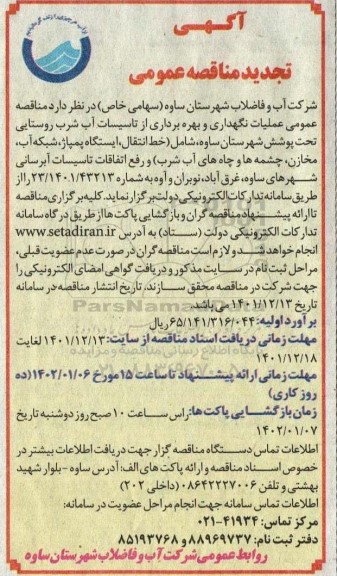 آگهی
تجدید مناقصه عمومی
شرکت آب و فاضلاب شهرستان ساوه (سهامی خاص) در نظر دارد مناقصه
عمومی عملیات نگهداری و بهره برداری از تاسیسات آب شرب روستایی
تحت پوشش شهرستان ساوه، شامل (خط انتقال، ایستگاه پمپاژ، شبکه آب،
مخازن، چشمه ها و چاه های آب شرب) و رفع اتفاقات تاسیسات آبرسانی
شهرهای ساوه، غرق آباد، نوبران و آوه به شماره ۲۳/۱۴۰۱/۴۳۲۱۳ را از
طریق سامانه تدارکات الکترونیکی دولت برگزار نماید. کلیه برگزاری مناقصه
تا ارائه پیشنهاد مناقصه گران و بازگشایی پاکت ها از طریق درگاه سامانه
تدارکات الکترونیکی دولت (ستاد) به آدرس www.setadiran.ir
انجام خواهد شد و لازم است مناقصه گران در صورت عدم عضویت قبلی،
مراحل ثبت نام در سایت مذکور و دریافت گواهی امضای الکترونیکی را
جهت شرکت در مناقصه محقق سازند، تاریخ انتشار مناقصه در سامانه
تاریخ ۱۴۰۱/۱۲/۱۳ می باشد.
برآورد اولیه: ۶۵/۱۴۱/۳۱۶/۰۴۴ ریال
مهلت زمانی دریافت اسناد مناقصه از سایت: ۱۴۰۱/۱۲/۱۳ لغایت
۱۴۰۱/۱۲/۱۸
مهلت زمانی ارائه پیشنهاد تا ساعت ۱۵ مورخ ۱۴۰۲/۰۱/۰۶ (ده
روز کاری)
زمان بازگشایی پاکت ها: راس ساعت ۱۰ صبح روز دوشنبه تاریخ
۱۴۰۲/۰۱/۰۷
اطلاعات تماس دستگاه مناقصه گزار جهت دریافت اطلاعات بیشتر در
خصوص اسناد مناقصه و ارائه پاکت های الف: آدرس ساوه - بلوار شهید
بهشتی و تلفن ۰۸۶۴۲۲۲۷۰۰۶ (داخلی ۲۰۲)
اطلاعات تماس سامانه جهت انجام مراحل عضویت در سامانه:
مرکز تماس: ۴۱۹۳۴-۰۲۱
دفتر ثبت نام: ۸۸۹۶۹۷۳۷ و ۸۵۱۹۳۷۶۸
روابط عمومی شرکت آب و فاضلاب شهرستان ساوه